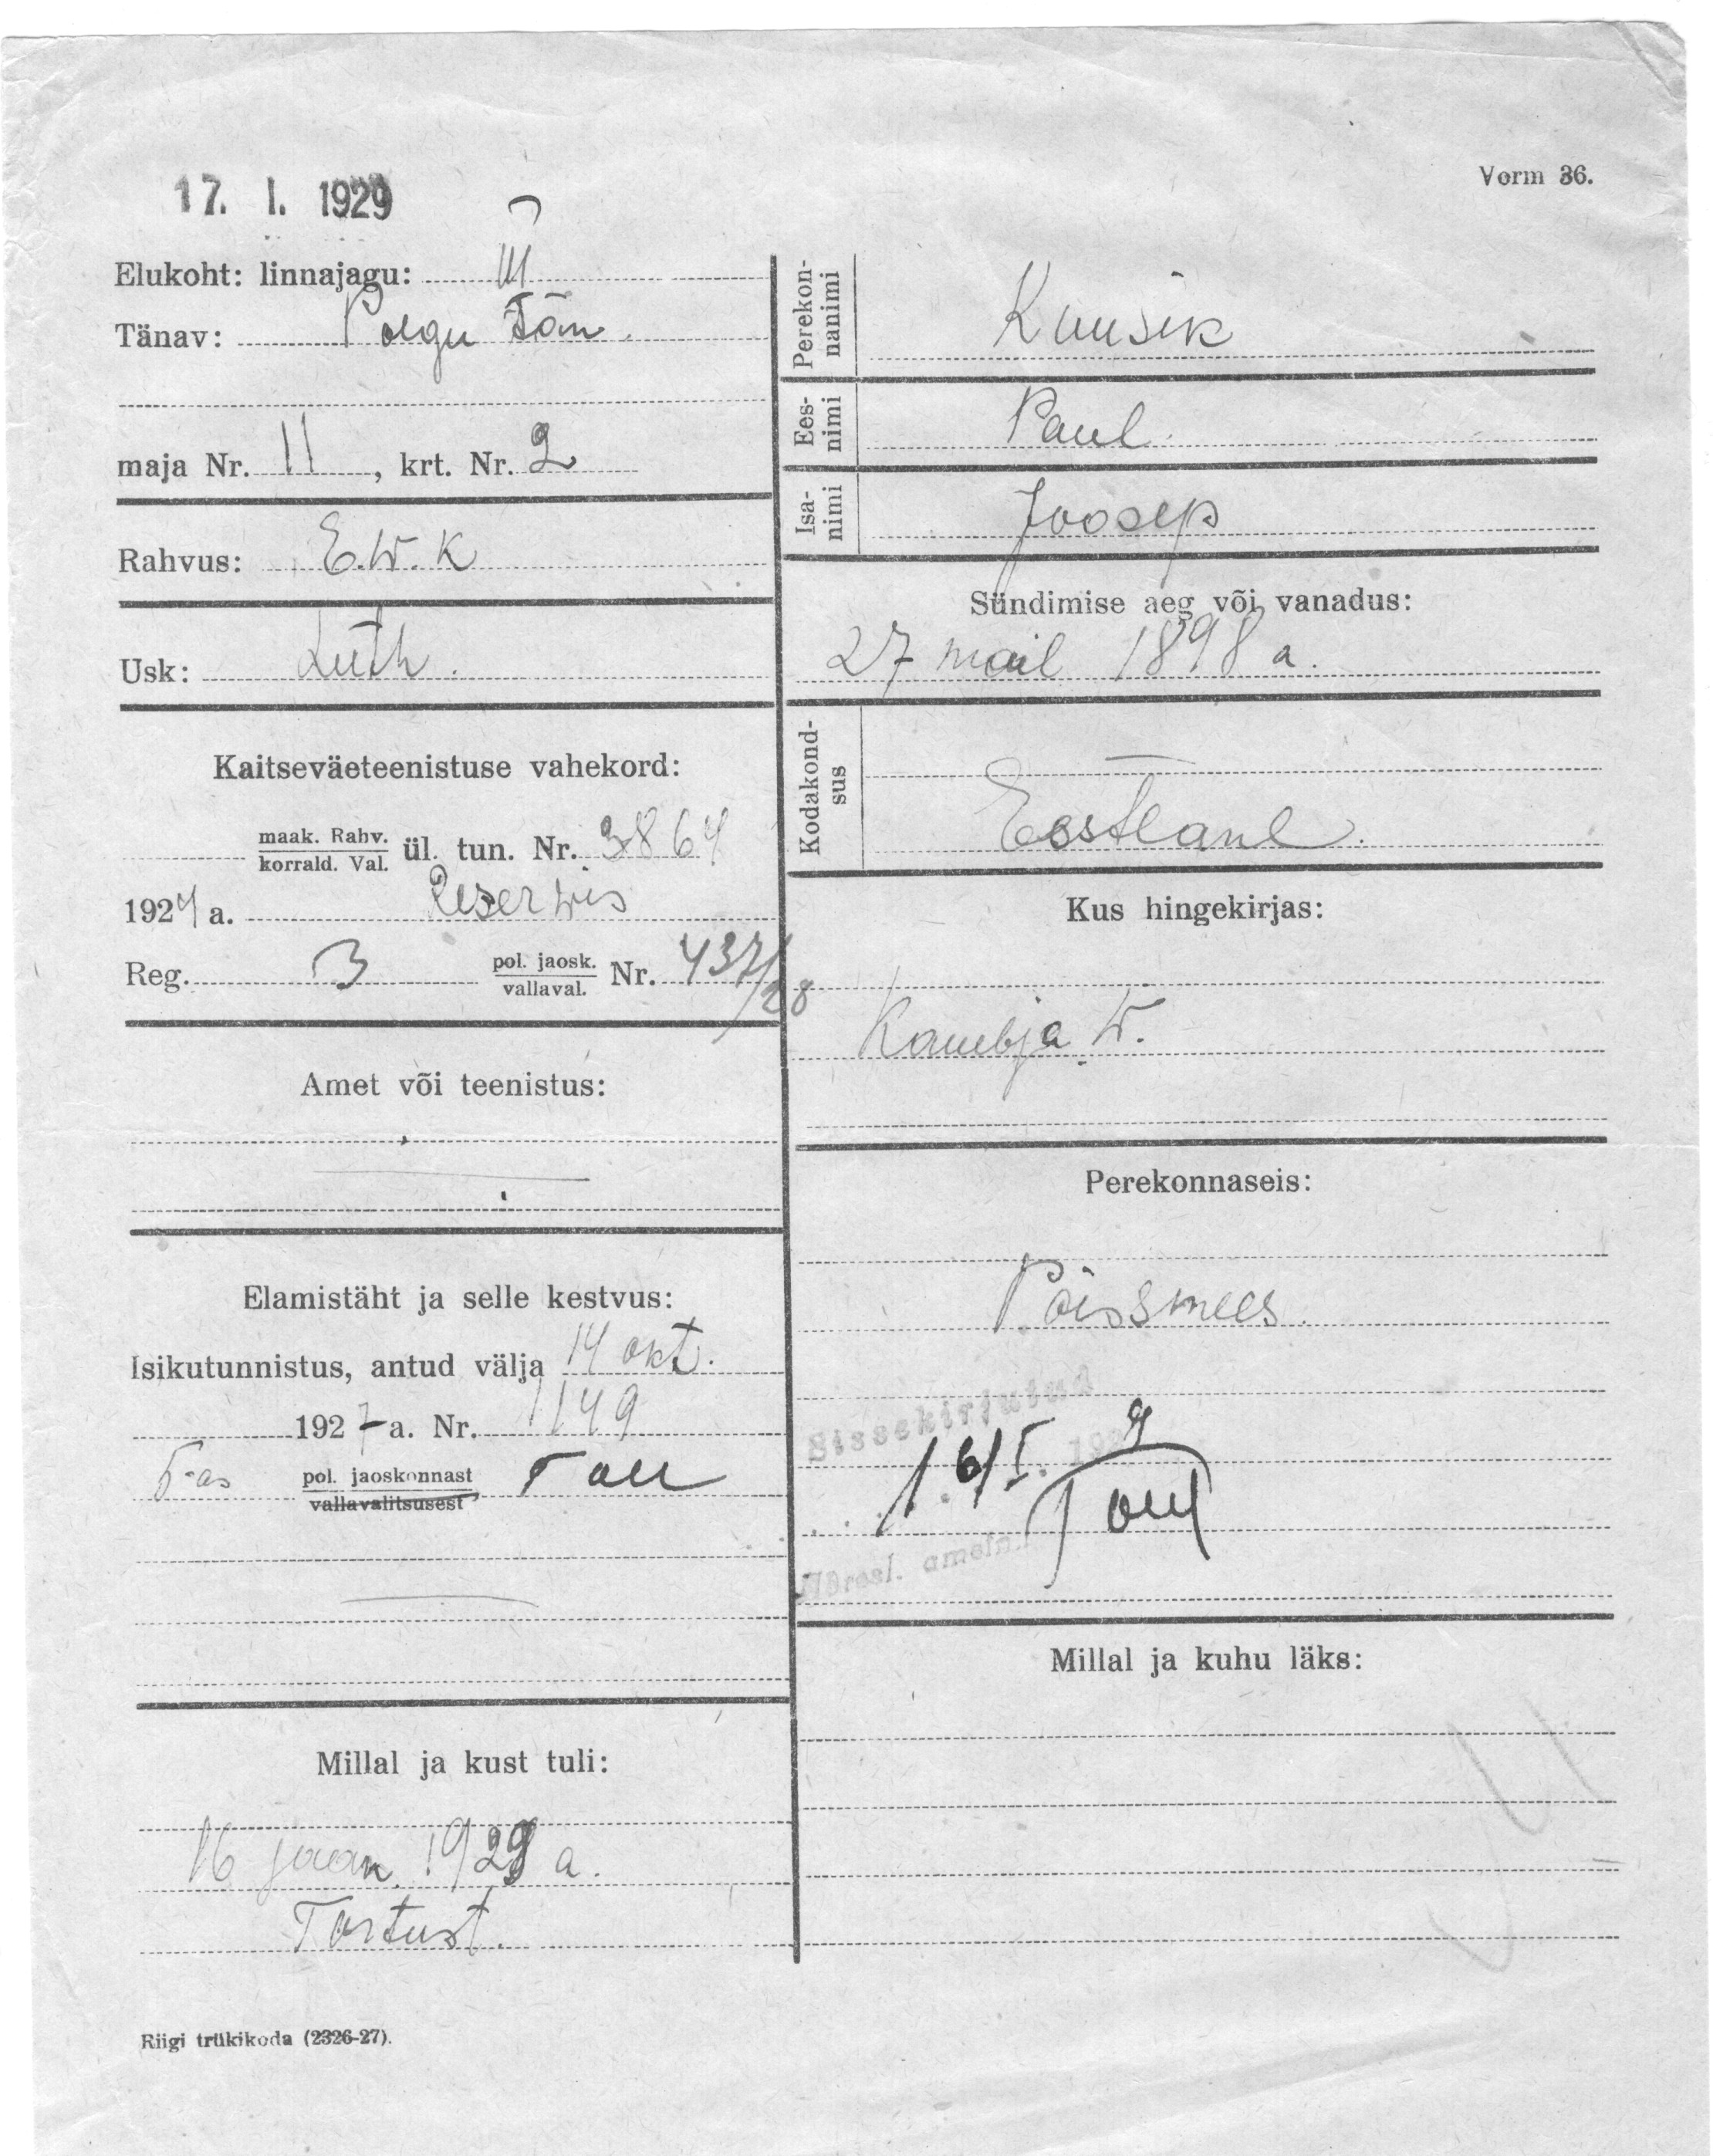 17. I. 1929
Vorm 36.
Elukoht: linnajagu: III
Tänav: Poegu Tän.
maja Nr. 11, krt. Nr. 2
Rahvus: E.W.K
Usk: Luth.
Kaitseväeteenistuse vahekord:
maak. Rahv.
korrald. Val. ül. tun. Nr. 3864
1924 a. Reserwis
Reg. 3 pol. jaosk.
vallaval. Nr. 437/28
Amet või teenistus:
Elamistäht ja selle kestvus:
Isikutunnistus, antud välja 14 okt.
1927 a. Nr. 1149
5-as pol. jaoskonnast
vallavalitsusest
Millal ja kust tuli:
16 jaan. 1929 a.
Tartust.
Perekon-
nanimi Kuusik
Ees-
nimi Paul
Isa-
nimi Joosep
Sündimise aeg või vanadus:
27 mail 1898 a.
Kodakond-
sus Eestlane.
Kus hingekirjas:
Kambja W.
Perekonnaseis:
Poissmees.
Sissekirjutud
16/I. 1929
Millal ja kuhu läks:
Riigi trükikoda (2326-27).